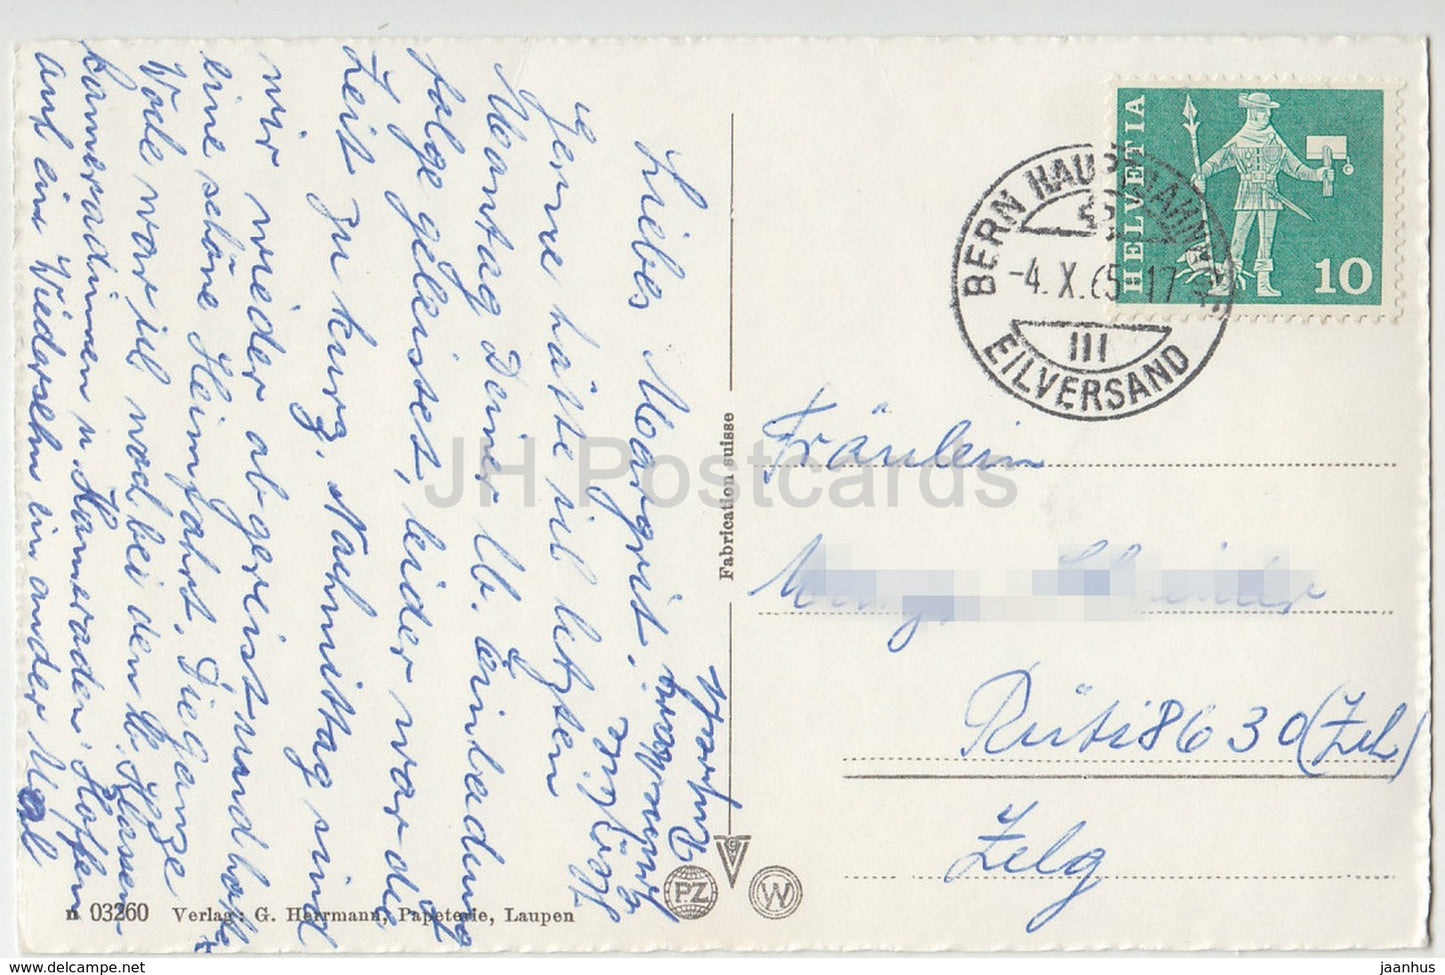 Liebes Margrit.
Gerne hätte ich letzten
Montag Deiner lb. Einladung
folge geleistet, leider war die
Zeit zu kurz. Nachmittag sind
wir wieder abgereist und hatten
eine schöne Heimfahrt. Die ganze
war ich noch bei den lb. Klassen
kameradinnen u Kameraden. Hoffen
auf ein Wiedersehn ein ander Mal
Herzliche
HELVETIA
10
BERN HAUPTBAHNHOF
-4. X. 65 -17
III
EILVERSAND
Fabrication suisse
Fräulein
Rüti 8630 (Zch)
Zelg
n 03260 Verlag: G. Herrmann, Papeterie, Laupen
PZ
W
JH Postcards
www.delcampe.net
jaanhus